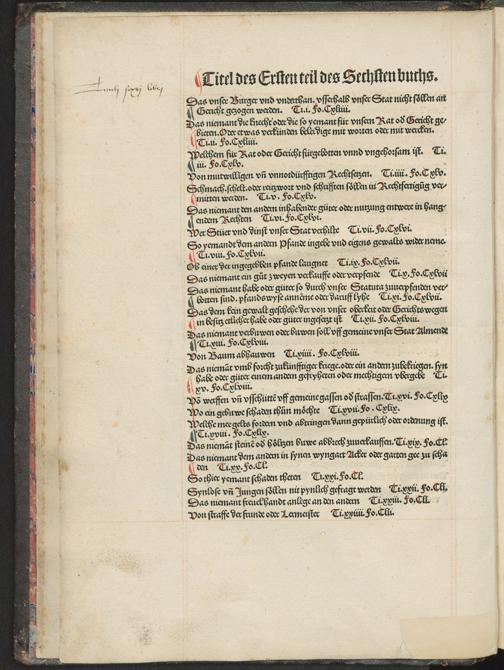 Titel des Ersten teil des Sechsten buchs.
Das vnser Burger vnd vnderthan. vsserhalb vnser Stat nicht söllen an
Gericht gezogen werden Ti.i. Fo.Cxliii.
Das niemant die knecht oder die so yemant für vnsern Rat od Gericht ge-
bieten. Oder etwas verkünden beleidige mit worten oder mit wercken.
Ti.ii. Fo.Cxliiii.
Welchem für Rat oder Gericht fürgebotten vnnd vngehorsam ist. Ti.
iii. Fo.Cxlv.
Von mutwilligen vñ vnnotdürfftigen Rechtsetzen. Ti.iiii. Fo.Cxlv.
Schmach. schelt. oder reitzwort vnd schrifften söllen in Rechfertigũg ver-
mitten werden. Ti.v. Fo.Cxlv.
Das niemant den andern inhabender güter oder nutzung entwere in hang-
endem Rechten Ti.vi. Fo.Cxlvi.
Wer Stüer vnd dinst vnser Stat verhilte Ti.vii. Fo.Cxlvi.
So yemandt dem andern Pfande ingebe vnd eigens gewalts wider neme.
Ti.viii. Fo.Cxlvii.
Ob einer der ingegeben pfande laugnet Ti.ix. Fo.Cxlvii.
Das niemant ein gůt zweyen verkauffe oder verpfende Ti.x. Fo.Cxlvii
Das niemant habe oder güter so durch vnser Statuta zuuerpfenden ver-
botten sind. pfands wyse annéme oder daruff lyhe Ti.xi. Fo.Cxlvii.
Das dem kein gewalt geschehe der von vnser oberkeit oder Gerichts wegen
in besitz etlicher habe oder güter ingesetzt ist Ti.xii. Fo.Cxlviii.
Das niemant verbuwen oder buwen soll vff gemeine vnser Stat Almende
Ti.xiii. Fo.Cxlviii.
Von Baum abhauwen Ti.xiiii. Fo.Cxlviii.
Das niemãt vmb forcht zukünfftiger kriege. oder ein andern zubekriegen. syn
habe oder güter einem andern gefryheten oder mechtigern vbergebe Ti.
xv. Fo.Cxlviii.
Vō werffen vñ vsschütte vff gemeine gassen od strassen. Ti.xvi. Fo.Cxlix
Wo ein gebuwe schaden thün möchte Ti.xvii. Fo.Cxlix.
Welche mer gelts fordern vnd abtringen dann gepürlich oder ordenung ist.
Ti.xviii. Fo.Cxlix.
Das niemãt steine od höltzen buwe abbrech zuuerkauffen. Ti.xix. Fo.Cl.
Das niemant dem andern in synen wyngart Acker oder garten gee zu scha
den Ti.xx. Fo.Cl.
So thier yemant schaden theten Ti.xxi. Fo.Cl.
Synlose vñ Jungen söllen nit pynlich gefragt werden Ti.xxii. Fo.Cli.
Das niemant freuelhandt anlege an den andern Ti.xxiii. Fo.Cli.
Von straffe der frunde oder Lermeister Ti.xxiiii. Fo.Cli.